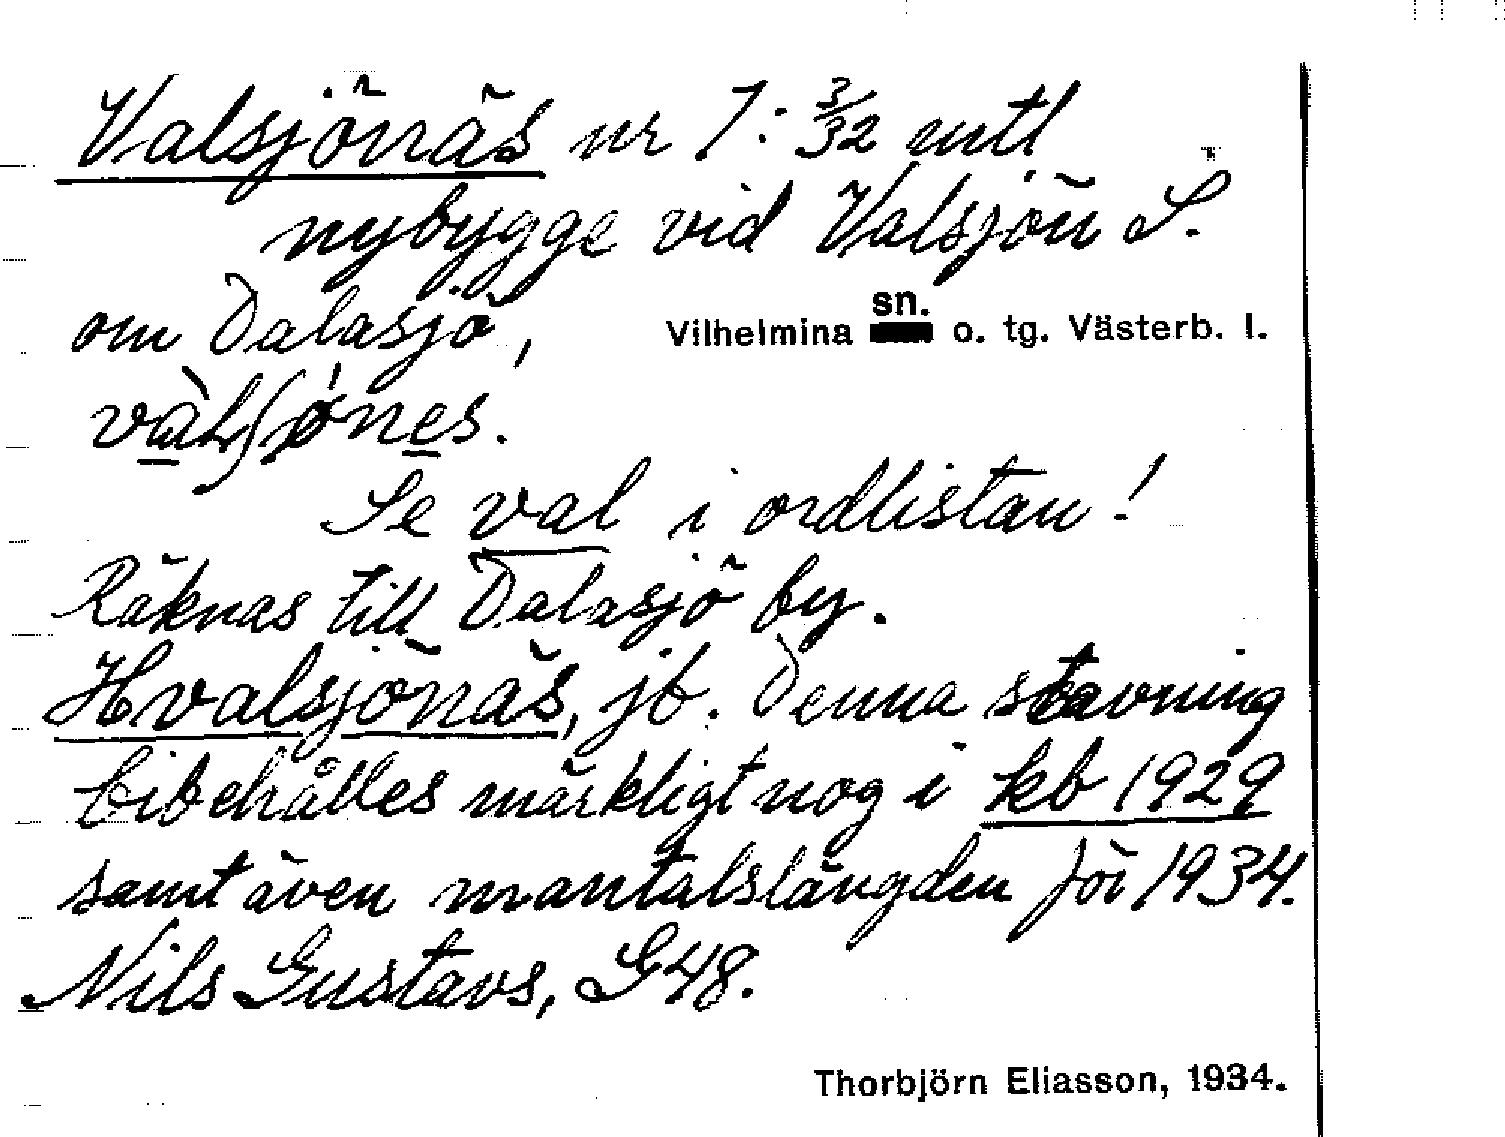 Valsjönäs nr 1: 3/32 mtl
nybygge vid Valsjön S.
om Dalasjö,
Vilhelmina sn. o. tg. Västerb. l.
Se val i ordlistan!
Räknas till Dalasjö by.
Hvalsjönäs, jb. Denna stavning
bibehålles märkligt nog i kb 1929
samt även mantalslängden för 1934.
Nils Gustavs, G48.
Thorbjörn Eliasson, 1934.